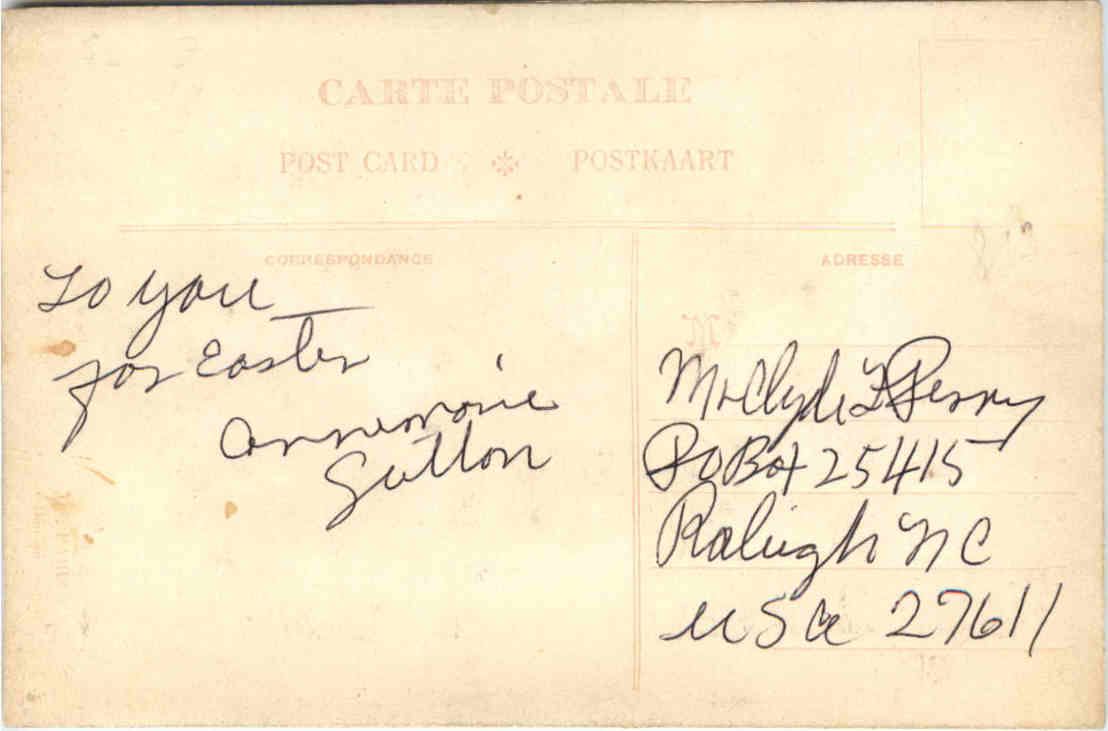 CARTE POSTALE
POST CARD ✻ POSTKAART
CORRESPONDANCE
ADRESSE
To you
for Easter
Annemarie
Sutton
M
Mr Clyde F Perry
PO Box 25415
Raleigh NC
USA 27611